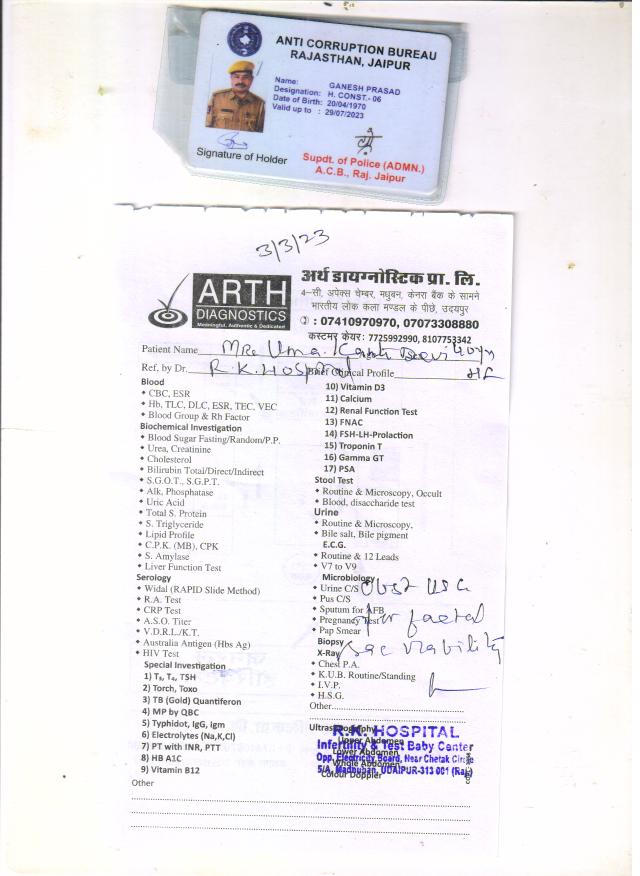 ANTI CORRUPTION BUREAU
RAJASTHAN, JAIPUR
Name: GANESH PRASAD
Designation: H. CONST.- 06
Date of Birth: 20/04/1970
Valid up to : 29/07/2023
Signature of Holder
Supdt. of Police (ADMN.)
A.C.B., Raj. Jaipur
3/3/23
ARTH
DIAGNOSTICS
Meaningful, Authentic & Dedicated
अर्थ डायग्नोस्टिक प्रा. लि.
4-सी, अपेक्स चेम्बर, मधुबन, केनरा बैंक के सामने
भारतीय लोक कला मण्डल के पीछे, उदयपुर
: 07410970970, 07073308880
कस्टमर केयर: 7725992990, 8107753342
Patient Name Mrs Uma Devi
Ref, by Dr. R.K. Hospital Brief Clinical Profile
Blood
CBC, ESR
Hb, TLC, DLC, ESR, TEC, VEC
Blood Group & Rh Factor
Biochemical Investigation
Blood Sugar Fasting/Random/P.P.
Urea, Creatinine
Cholesterol
Bilirubin Total/Direct/Indirect
S.G.O.T., S.G.P.T.
Alk, Phosphatase
Uric Acid
Total S. Protein
S. Triglyceride
Lipid Profile
C.P.K. (MB), CPK
S. Amylase
Liver Function Test
Serology
Widal (RAPID Slide Method)
R.A. Test
CRP Test
A.S.O. Titer
V.D.R.L./K.T.
Australia Antigen (Hbs Ag)
HIV Test
Special Investigation
1) T₃, T₄, TSH
2) Torch, Toxo
3) TB (Gold) Quantiferon
4) MP by QBC
5) Typhidot, IgG, Igm
6) Electrolytes (Na,K,Cl)
7) PT with INR, PTT
8) HB A1C
9) Vitamin B12
Other
10) Vitamin D3
11) Calcium
12) Renal Function Test
13) FNAC
14) FSH-LH-Prolaction
15) Troponin T
16) Gamma GT
17) PSA
Stool Test
Routine & Microscopy, Occult
Blood, disaccharide test
Urine
Routine & Microscopy,
Bile salt, Bile pigment
E.C.G.
Routine & 12 Leads
V7 to V9
Microbiology
Urine C/S
Pus C/S
Sputum for AFB
Pregnancy Test
Pap Smear
Biopsy
X-Ray
Chest P.A.
K.U.B. Routine/Standing
I.V.P.
H.S.G.
Other
Obst USG
for faetal
sac viability
Ultrasonography
Upper Abdomen
Lower Abdomen
Whole Abdomen
Colour Doppler
R.K. HOSPITAL
Infertility & Test Baby Center
Opp. Electricity Board, Near Chetak Circle
5/A, Madhuban, UDAIPUR-313 001 (Raj.)